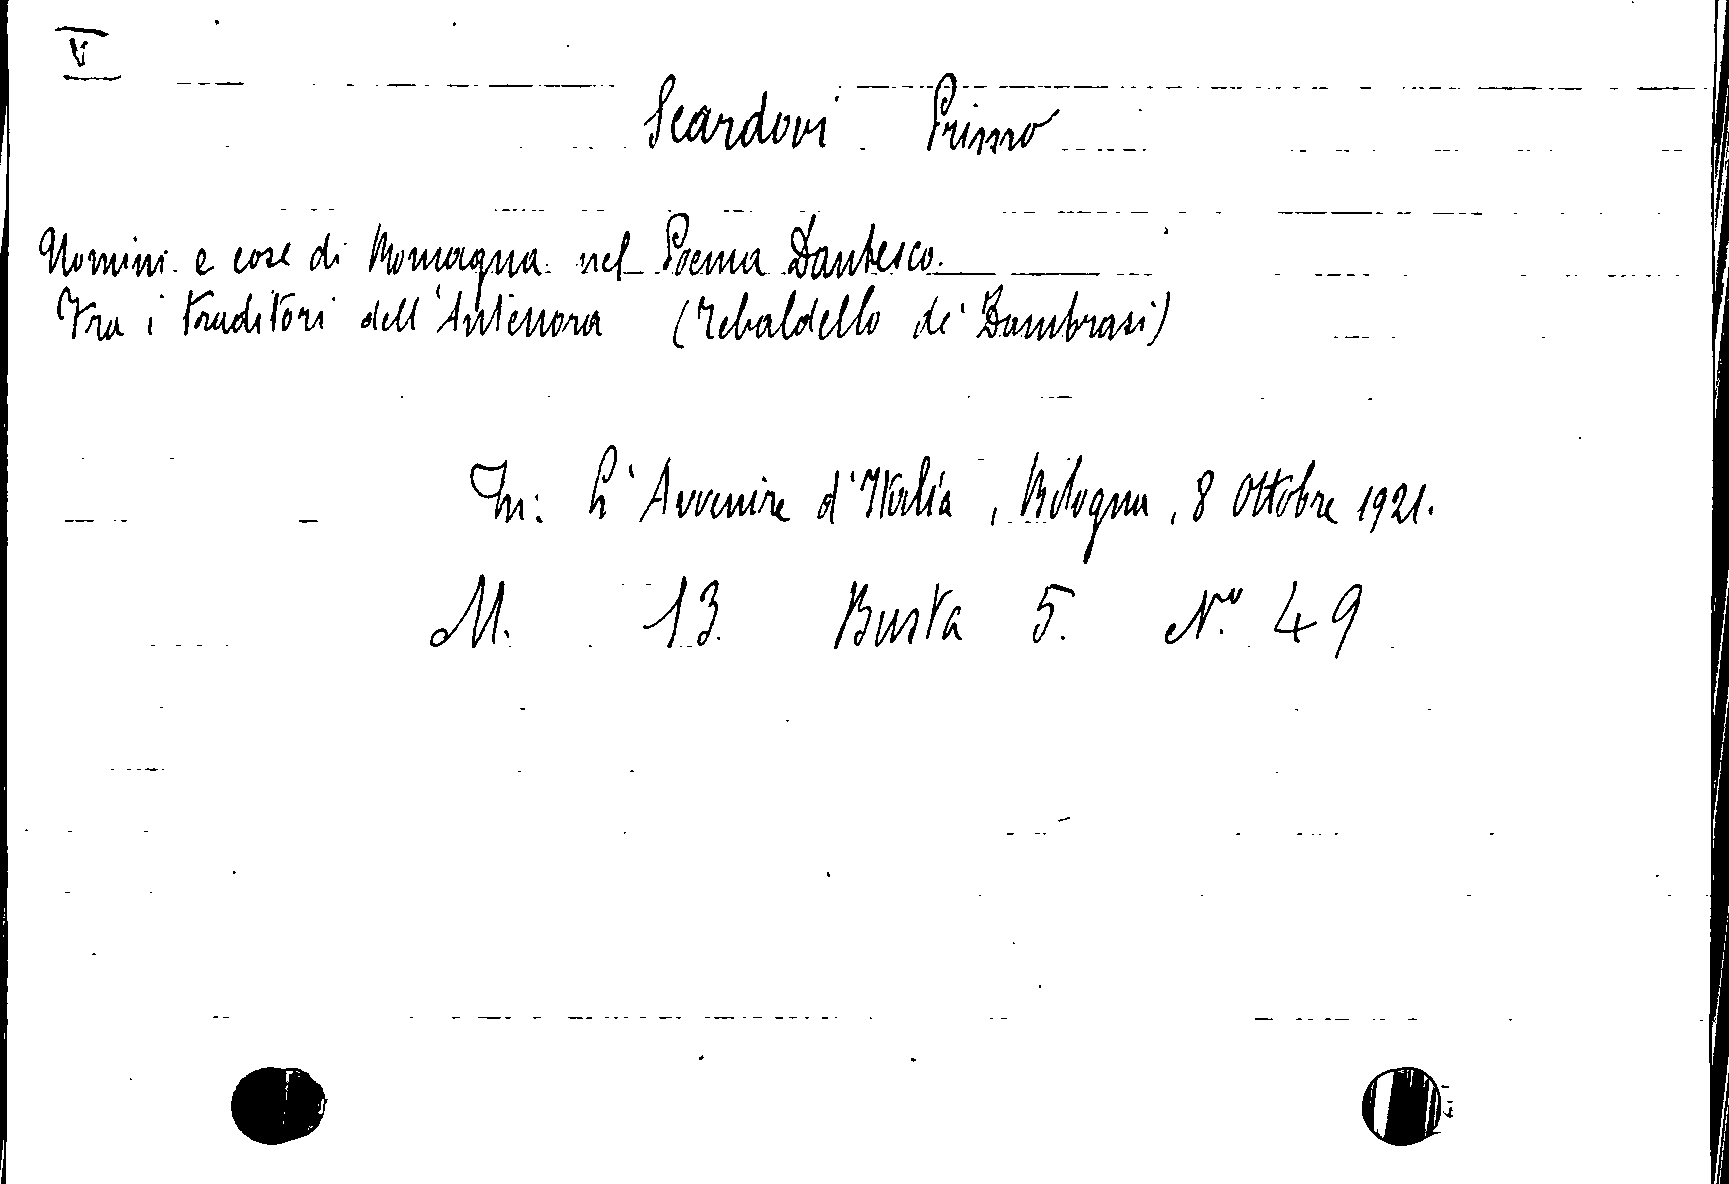 V
Scardovi Primo
Uomini e cose di Romagna nel Poema Dantesco.
Tra i traditori dell'Antenora (Tebaldello de' Zambrasi)
In: L'Avvenire d'Italia, Bologna, 8 Ottobre 1921.
M. 13. Busta 5. N.º 49